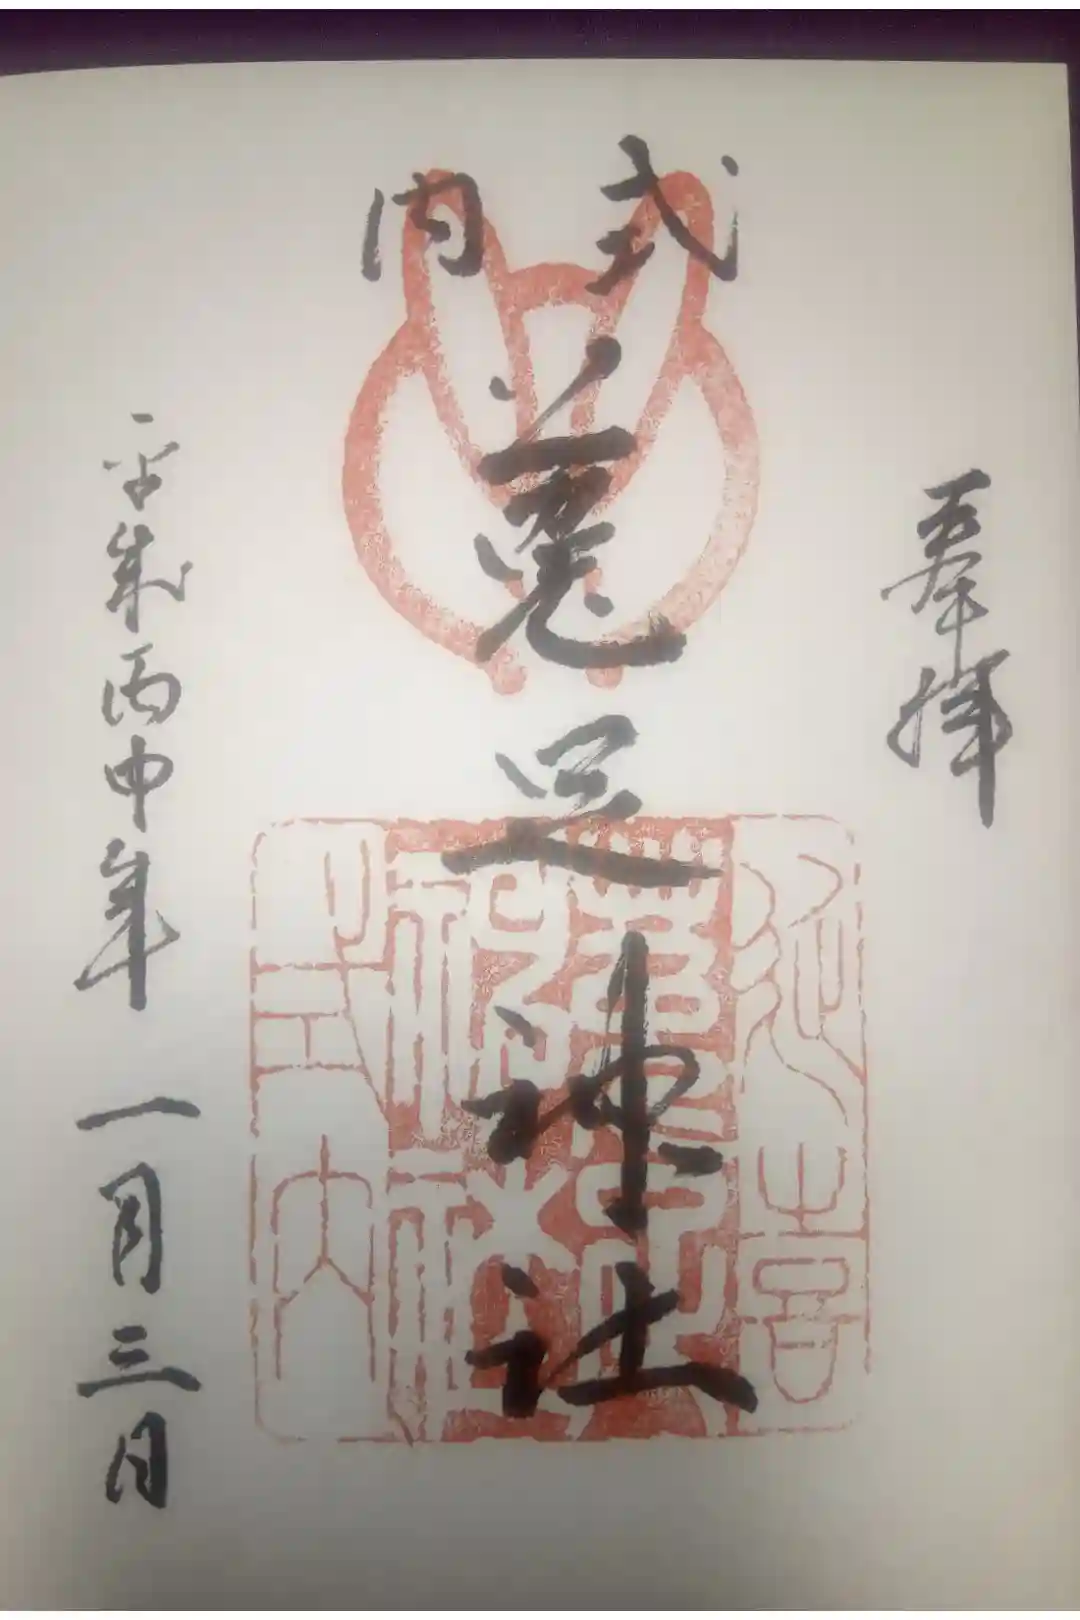 奉拝
式内
菟足神社
延喜
菟足
神社
式内
平成丙申年 一月三日